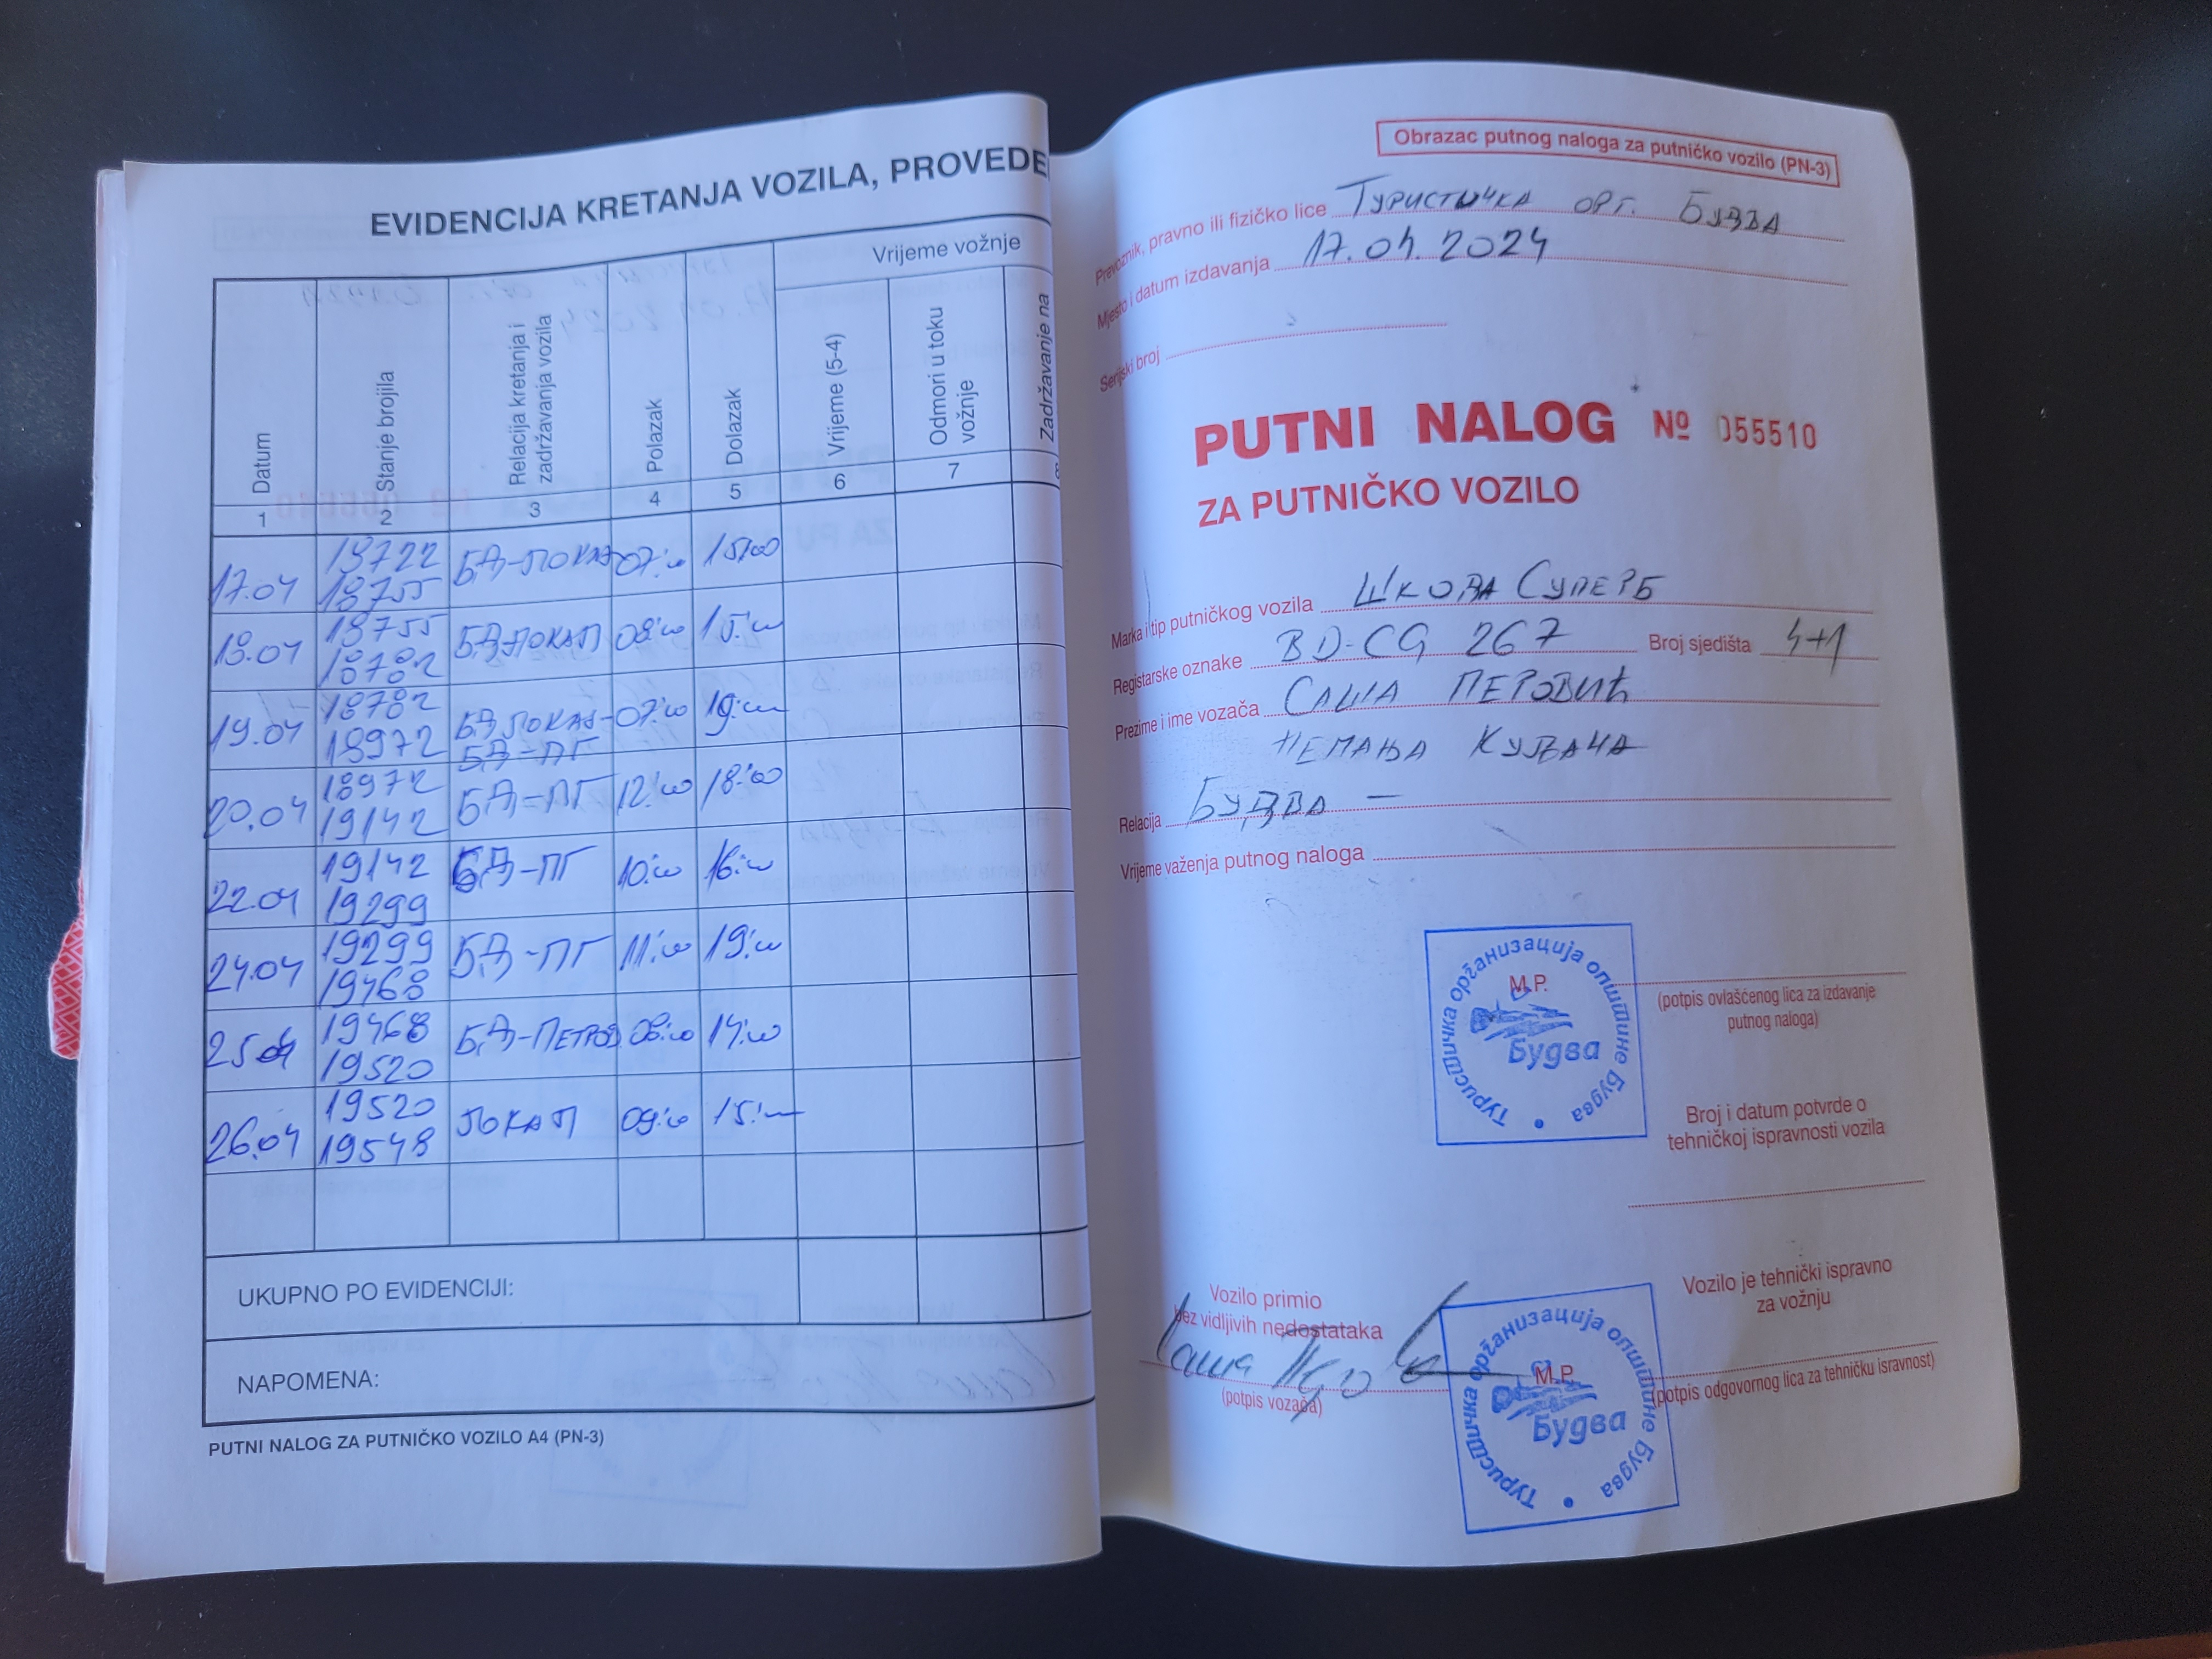 EVIDENCIJA KRETANJA VOZILA, PROVEDE
Datum
Stanje brojila
Relacija kretanja i
zadržavanja vozila
Polazak
Dolazak
Vrijeme vožnje
Vrijeme (5-4)
Odmori u toku
vožnje
Zadržavanje na
1 2 3 4 5 6 7
17.04 18722 БД-ЛОКАЛ 07:00 15:00
18755
18.04 18755 БД ЛОКАЛ 08:00 15:00
18782
19.04 18782 БД ЛОКАЛ- 07:00 19:00
18972 БД-ПГ
20.04 18972 БД-ПГ 12:00 18:00
19142
22.04 19142 БД-ПГ 10:00 16:00
19299
24.04 19299 БД-ПГ 11:00 19:00
19468
25.04 19468 БД-ПЕТРОВ 08:00 14:00
19520
26.04 19520 ЛОКАЛ 09:00 15:00
19548
UKUPNO PO EVIDENCIJI:
NAPOMENA:
PUTNI NALOG ZA PUTNIČKO VOZILO A4 (PN-3)
Obrazac putnog naloga za putničko vozilo (PN-3)
Prevoznik, pravno ili fizičko lice ТУРИСТИЧКА ОРГ. БУДВА
Mjesto i datum izdavanja 17.04.2024
Serijski broj
PUTNI NALOG № 055510
ZA PUTNIČKO VOZILO
Marka i tip putničkog vozila ШКОДА СУПЕРБ
Registarske oznake BD-CG 267 Broj sjedišta 4+1
Prezime i ime vozača САША ПЕРОВИЋ
НЕМАЊА КУЉАЧА
Relacija БУДВА -
Vrijeme važenja putnog naloga
Туристичка организација општине Будва
М.Р.
Будва
(potpis ovlašćenog lica za izdavanje
putnog naloga)
Broj i datum potvrde o
tehničkoj ispravnosti vozila
Vozilo primio
bez vidljivih nedostataka
Саша
(potpis vozača)
Туристичка организација општине Будва
M.P.
Будва
Vozilo je tehnički ispravno
za vožnju
(potpis odgovornog lica za tehničku isravnost)